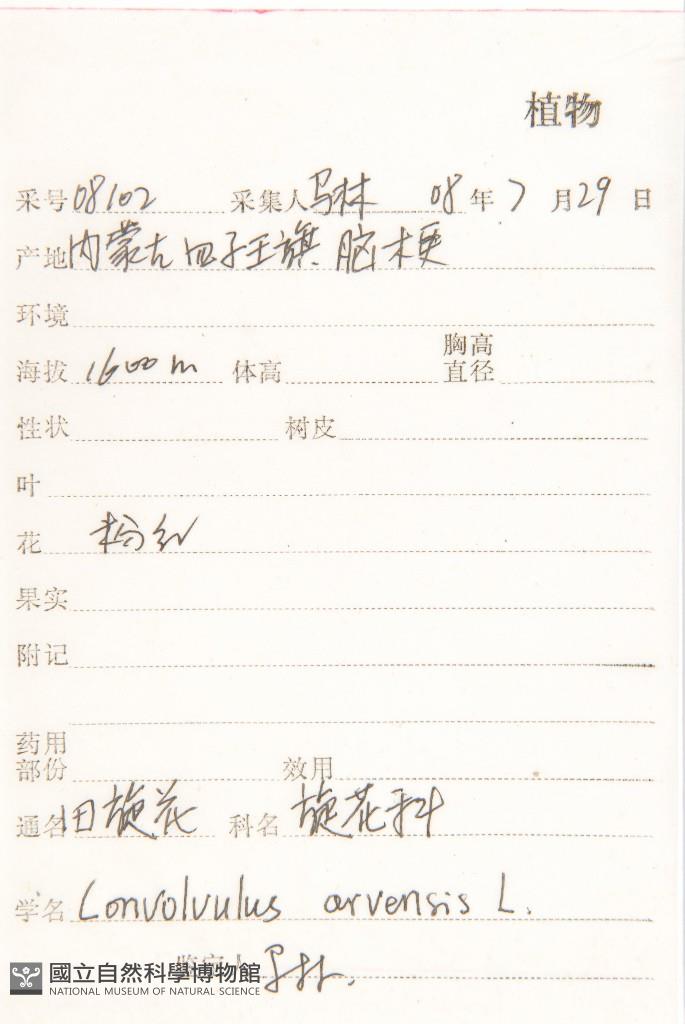 植物
采号 08102 采集人 马林 08 年 7 月 29 日
产地 内蒙古 四子王旗 脑木更
环境
海拔 1600 m 体高 胸高直径
性状 树皮
叶
花 粉红
果实
附记
药用部份 效用
通名 田旋花 科名 旋花科
学名 Convolvulus arvensis L.
鉴定人 马林.
國立自然科學博物館
NATIONAL MUSEUM OF NATURAL SCIENCE